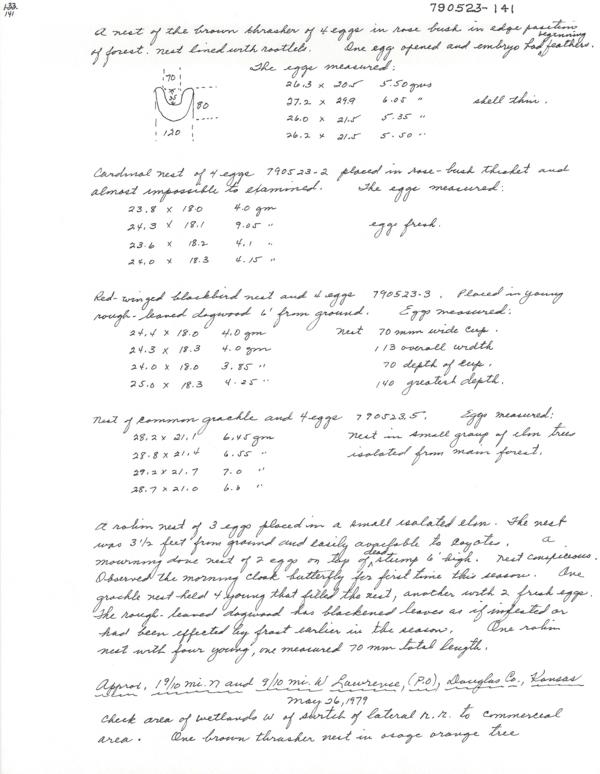 133
141
790523-141
A nest of the brown thrasher of 4 eggs in rose bush in edge position
of forest. Nest lined with rootlets. One egg opened and embryo had beginning feathers.
The eggs measured:
70
35
80
120
26.3 x 20.5 5.50 gms
27.2 x 29.9 6.05 " shell thin.
26.0 x 21.5 5.35 "
26.2 x 21.5 5.50 "
Cardinal nest of 4 eggs 790523-2 placed in rose-bush thicket and
almost impossible to examined. The eggs measured:
23.8 x 18.0 4.0 gm
24.3 x 18.1 9.05 " eggs fresh.
23.6 x 18.2 4.1 "
24.0 x 18.3 4.15 "
Red-winged blackbird nest and 4 eggs 790523-3. Placed in young
rough-leaved dogwood 6' from ground. Eggs measured:
24.4 x 18.0 4.0 gm Nest 70 mm wide cup.
24.3 x 18.3 4.0 gm 113 overall width
24.0 x 18.0 3.85 " 70 depth of cup.
25.0 x 18.3 4.25 " 140 greatest depth.
Nest of common grackle and 4 eggs 790523.5. Eggs measured:
28.2 x 21.1 6.45 gm Nest in small group of elm trees
28.8 x 21.4 6.55 " isolated from main forest.
29.2 x 21.7 7.0 "
28.7 x 21.0 6.6 "
A robin nest of 3 eggs placed in a small isolated elm. The nest
was 3 1/2 feet from ground and easily available to coyotes. A
mourning dove nest of 2 eggs on top of dead stump 6' high. Nest conspicuous.
Observed the morning cloak butterfly for first time this season. One
grackle nest held 4 young that filled the nest, another with 2 fresh eggs.
The rough-leaved dogwood has blackened leaves as if infested or
had been effected by frost earlier in the season. One robin
nest with four young, one measured 70 mm total length.
Approx. 1 9/10 mi. N and 9/10 mi. W Lawrence, (P.O), Douglas Co., Kansas
May 26, 1979
Check area of wetlands W of switch of lateral R.R. to commercial
area. One brown thrasher nest in osage orange tree